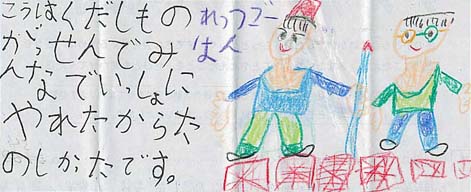 こうはくだしもの
がっせんでみ
んなでいっしょに
やれたからた
のしかたです。
れっつごー
はん